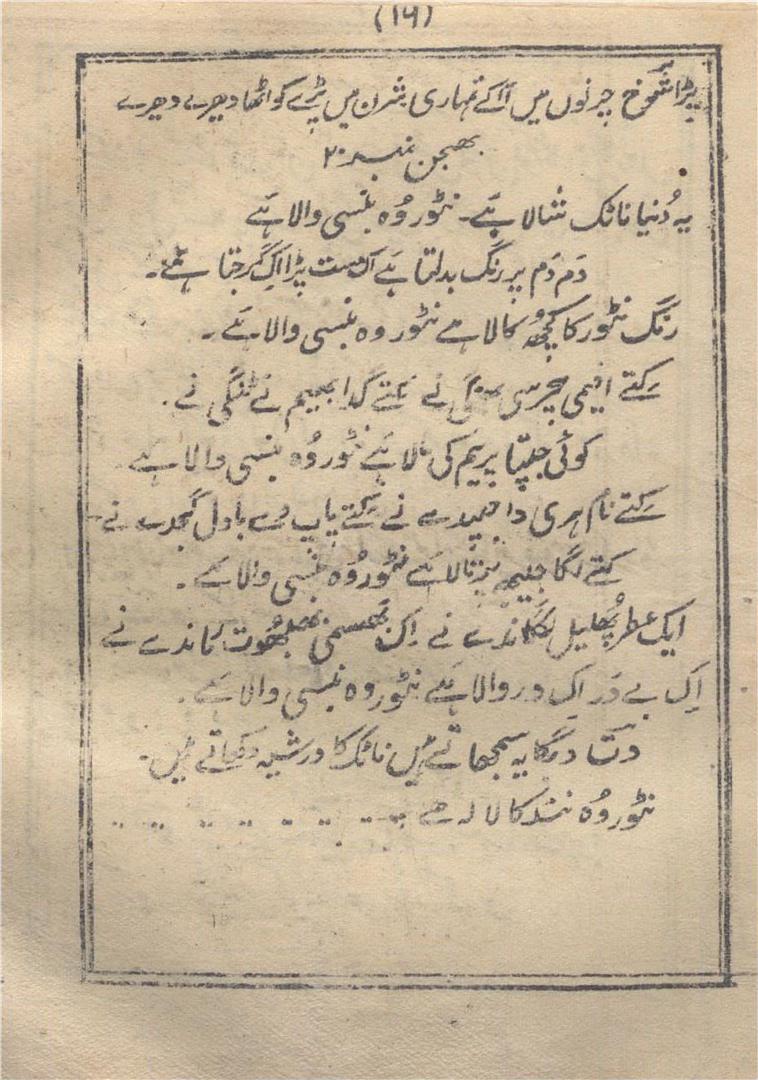 (۱۶)
پڑا شوخ چرنوں میں آ کے تمہاری شرن میں پڑے کو اٹھا دھیرے دھیرے
بھجن نمبر ۲۰
یہ دُنیا ناٹک شالا ہَے۔ نٹور وُہ بنسی والا ہَے
دَم دَم پر رنگ بدلتا ہَے اک پڑا اِک گرجتا ہَے۔
رنگ نٹور کا کچُھ کالا ہے نٹور وہ بنسی والا ہَے۔
کِتے افیمی چرسی بھنگی نے کِتے گدا بھیم نے ٹنگی نے۔
کوئی جپتا پریم کی مالا ہَے نٹور وُہ بنسی والا ہے
کِتے نام ہری دا جپیدے نے کِتے پاپ دے بادل گجدے نے۔
کتے لگا تالا ہَے نٹور وُہ بنسی والا ہَے۔
ایک عطر پُھلیل لگاندے نے اِک بھسمی بھبھُوت رماندے نے
اِک بے دَر اِک در والا ہَے نٹور وہ بنسی والا ہَے۔
دتؔ درگا یہ سمجھاتے ہیں ناٹک کا درشیہ دکھاتے ہیں۔
نٹور وُہ نند کا لالہ ہے